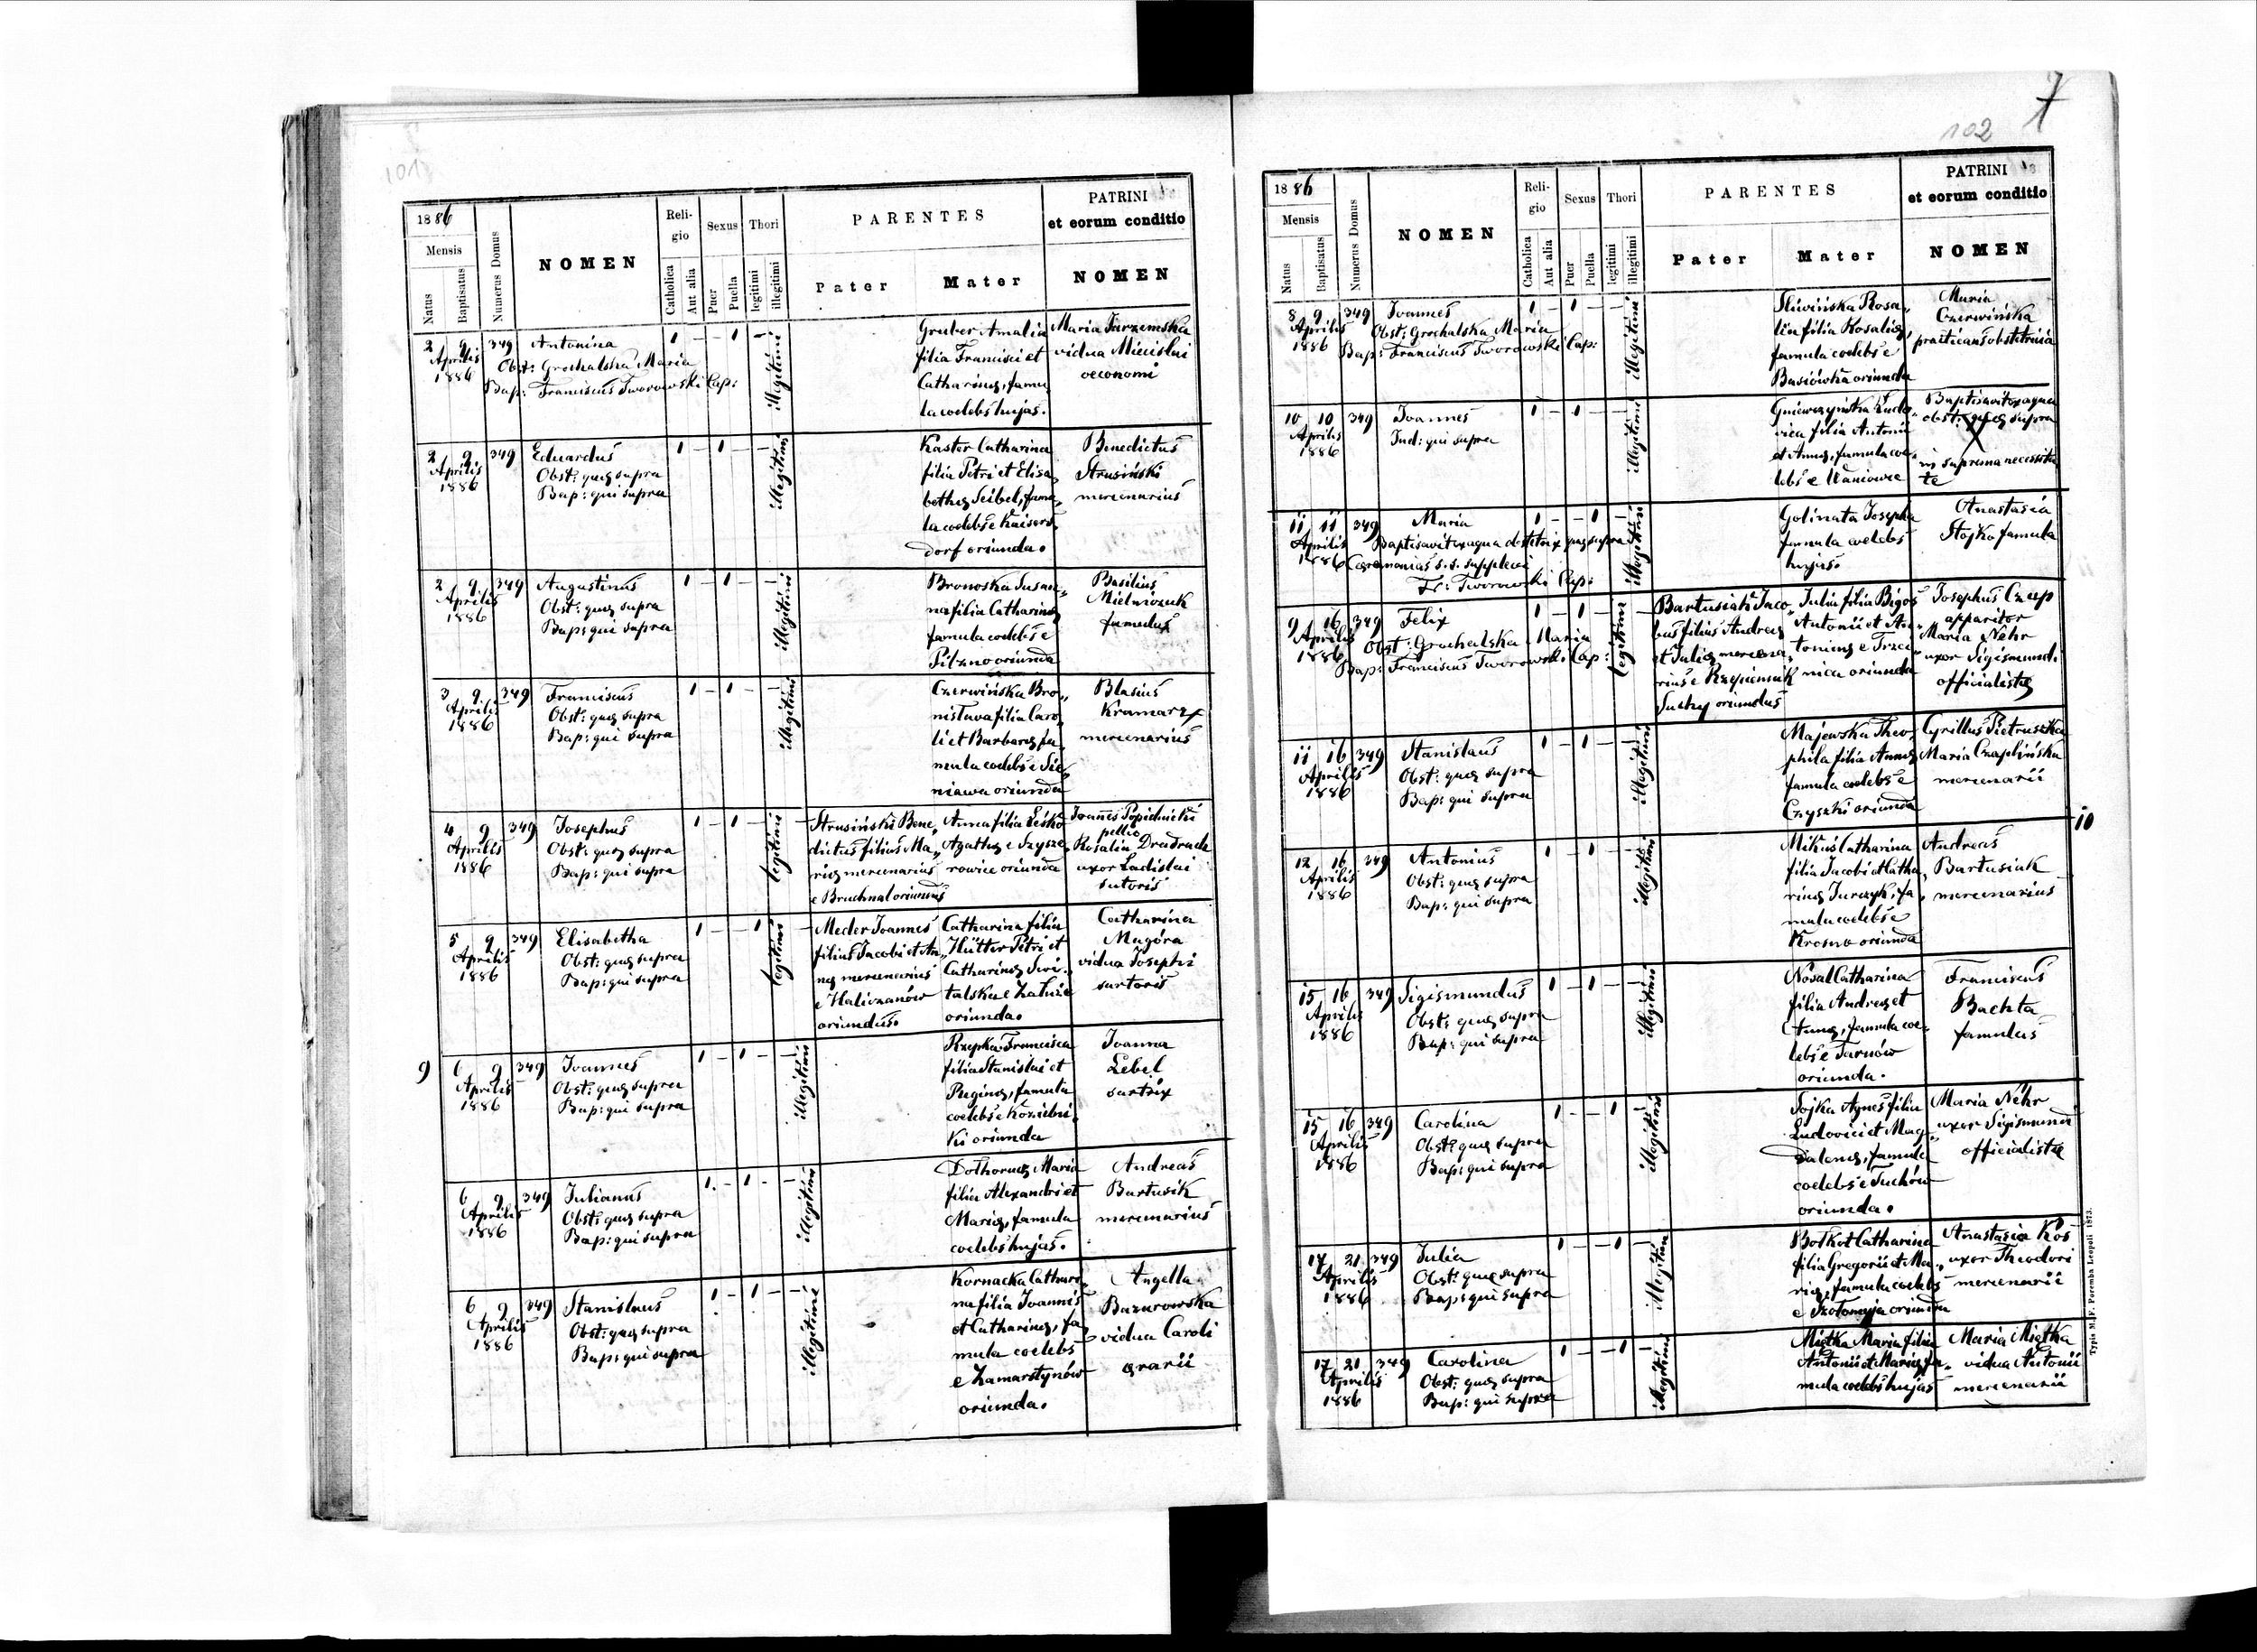 101
1886
Mensis
Natus
Baptisatus
Numerus Domus
NOMEN
Religio
Catholica
Aut alia
Sexus
Puer
Puella
Thori
legitimi
illegitimi
PARENTES
Pater
Mater
PATRINI
et eorum conditio
NOMEN
2 9 349 Antonina 1 – – 1 – 1
Aprilis
1886
Obst: Grochalska Maria
Bap: Franciscus Tworowski Cap:
illegitimi
Gruber Amalia
filia Francisci et
Catharinæ, famu„
la coelebs hujas.
Maria
vidua Miecislai
oeconomi
2 9 349 Eduardus 1 – 1 – –
Aprilis
1886
Obst: quæ supra
Bap: qui supra
illegitimi
Kaster Catharina
filia Petri et Elisa„
bethæ Seibel, famu„
la coelebs e Kaisers„
dorf oriunda.
Benedictus
Strusiński
mercenarius
2 9 349 Augustinus 1 – 1 – –
Aprilis
1886
Obst: quæ supra
Bap: qui supra
illegitimi
Bronoska Susan„
na filia Catharinæ
famula coelebs e
Pilzno oriunda
Basilius
Mielniczuk
famulus
3 9 349 Franciscus 1 – 1 – –
Aprilis
1886
Obst: quæ supra
Bap: qui supra
illegitimi
Czerwińska Bro„
nislava filia Caro„
li et Barbaræ, fa„
mula coelebs e Sie„
niawa oriunda
Blasius
Kramarz
mercenarius
4 9 349 Josephus 1 – 1 –
Aprilis
1886
Obst: quæ supra
Bap: qui supra
legitimi
Strusiński Bene„
dictus filius Ma„
riæ mercenarius
e Bruchnal oriundus
Anna filia Leśko
Agathæ e Szysze„
rowice oriunda
Joannes Popidnicki
pellio
Rosalia
uxor Ladislai
sutoris
5 9 349 Elisabetha 1 – – 1 –
Aprilis
1886
Obst: quæ supra
Bap: qui supra
legitimi
Meder Joannes
filius Jacobi et An„
næ mercenarius
e Haliczanów
oriundus.
Catharina filia
Hütter Petri et
Catharinæ Swi„
talska e Załuże
oriunda.
Catharina
Magóra
vidua Josephi
sartoris
9
6 9 349 Joannes 1 – 1 – –
Aprilis
1886
Obst: quæ supra
Bap: qui supra
illegitimi
Rzepka Francisca
filia Stanislai et
Reginæ, famula
coelebs e Koziebni„
ki oriunda
Joanna
Lebel
sartrix
6 9 349 Julianus 1 – 1 – –
Aprilis
1886
Obst: quæ supra
Bap: qui supra
illegitimi
Maria
filia Alexandri et
Mariæ, famula
coelebs hujas.
Andreas
Bartusik
mercenarius
6 9 349 Stanislaus 1 – 1 – –
Aprilis
1886
Obst: quæ supra
Bap: qui supra
illegitimi
Kornacka Cathari„
na filia Joannis
et Catharinæ, fa„
mula coelebs
e Zamarstynów
oriunda.
Angella
Bazurowska
vidua Caroli
ararii
102
7
1886
Mensis
Natus
Baptisatus
Numerus Domus
NOMEN
Religio
Catholica
Aut alia
Sexus
Puer
Puella
Thori
legitimi
illegitimi
PARENTES
Pater
Mater
PATRINI
et eorum conditio
NOMEN
8 9 349 Joannes 1 – 1 – – 1
Aprilis
1886
Obst: Grochalska Maria
Bap: Franciscus Tworowski Cap:
illegitimi
Śliwińska Rosa„
lia filia Rosaliæ,
famula coelebs e
Basiówka oriunda
Maria
Czerwińska
practicans obstetricia
10 10 349 Joannes 1 – 1 – –
Aprilis
1886
Ind: qui supra
illegitimi
Gniewczyńska Ludo„
vica filia Antonii
et Annæ, famula coe„
lebs e Waniowce
Baptisavit ex aqua
obst: quæ supra
in suprema necessita
te
11 11 349 Maria 1 – – 1 –
Aprilis
1886
Baptisavit ex aqua obstetrix quæ supra
Cæremonias s. s. supplevi
Fr: Tworowski Cap:
illegitimi
Golinata Josepha
famula coelebs
hujas.
Anastasia
Stojko famula
9 16 349 Felix 1 – 1 –
Aprilis
1886
Obst: Grochalska Maria
Bap: Franciscus Tworowski Cap:
legitimi
Bartusiak Jaco„
bus filius Andreæ
et Juliæ mercena„
rius e Rzepiennik
Suchy oriundus
Julia filia Bigos
Antonii et An„
toninæ e Trzci„
nica oriunda
Josephus Czup
apparitor
Maria Nehr
uxor Sigismundi
officialistæ
11 16 349 Stanislaus 1 – 1 – –
Aprilis
1886
Obst: quæ supra
Bap: qui supra
illegitimi
Majewska Theo„
phila filia Annæ
famula coelebs e
Czyszki oriunda
Cyrillus Pietruszka
Maria Czaplińska
mercenarii
10
12 16 349 Antonius 1 – 1 – –
Aprilis
1886
Obst: quæ supra
Bap: qui supra
illegitimi
Mikus Catharina
filia Jacobi et Catha„
rinæ Jurczyk, fa„
mula coelebs e
Krosno oriunda
Andreas
Bartusiak
mercenarius
15 16 349 Sigismundus 1 – 1 – –
Aprilis
1886
Obst: quæ supra
Bap: qui supra
illegitimi
Nosal Catharina
filia Andreæ et
Annæ, famula coe„
lebs e Tarnów
oriunda.
Franciscus
Bachta
famulus
15 16 349 Carolina 1 – – 1 –
Aprilis
1886
Obst: quæ supra
Bap: qui supra
illegitimi
Sojka Agnes filia
Ludovici et Mag„
dalenæ, famula
coelebs e Tuchów
oriunda.
Maria Nehr
uxor Sigismundi
officialistæ
17 21 349 Julia 1 – – 1 –
Aprilis
1886
Obst: quæ supra
Bap: qui supra
illegitimi
Botkot Catharina
filia Gregorii et Ma„
riæ, famula coelebs
e Szołomyja oriunda
Anastasia Kós
uxor Theodori
mercenarii
17 21 349 Carolina 1 – – 1 –
Aprilis
1886
Obst: quæ supra
Bap: qui supra
illegitimi
Miętka Maria filia
Antonii et Mariæ, fa„
mula coelebs hujas
Maria Miętka
vidua Antonii
mercenarii
Typis M. F. Poremba Leopoli 1873.